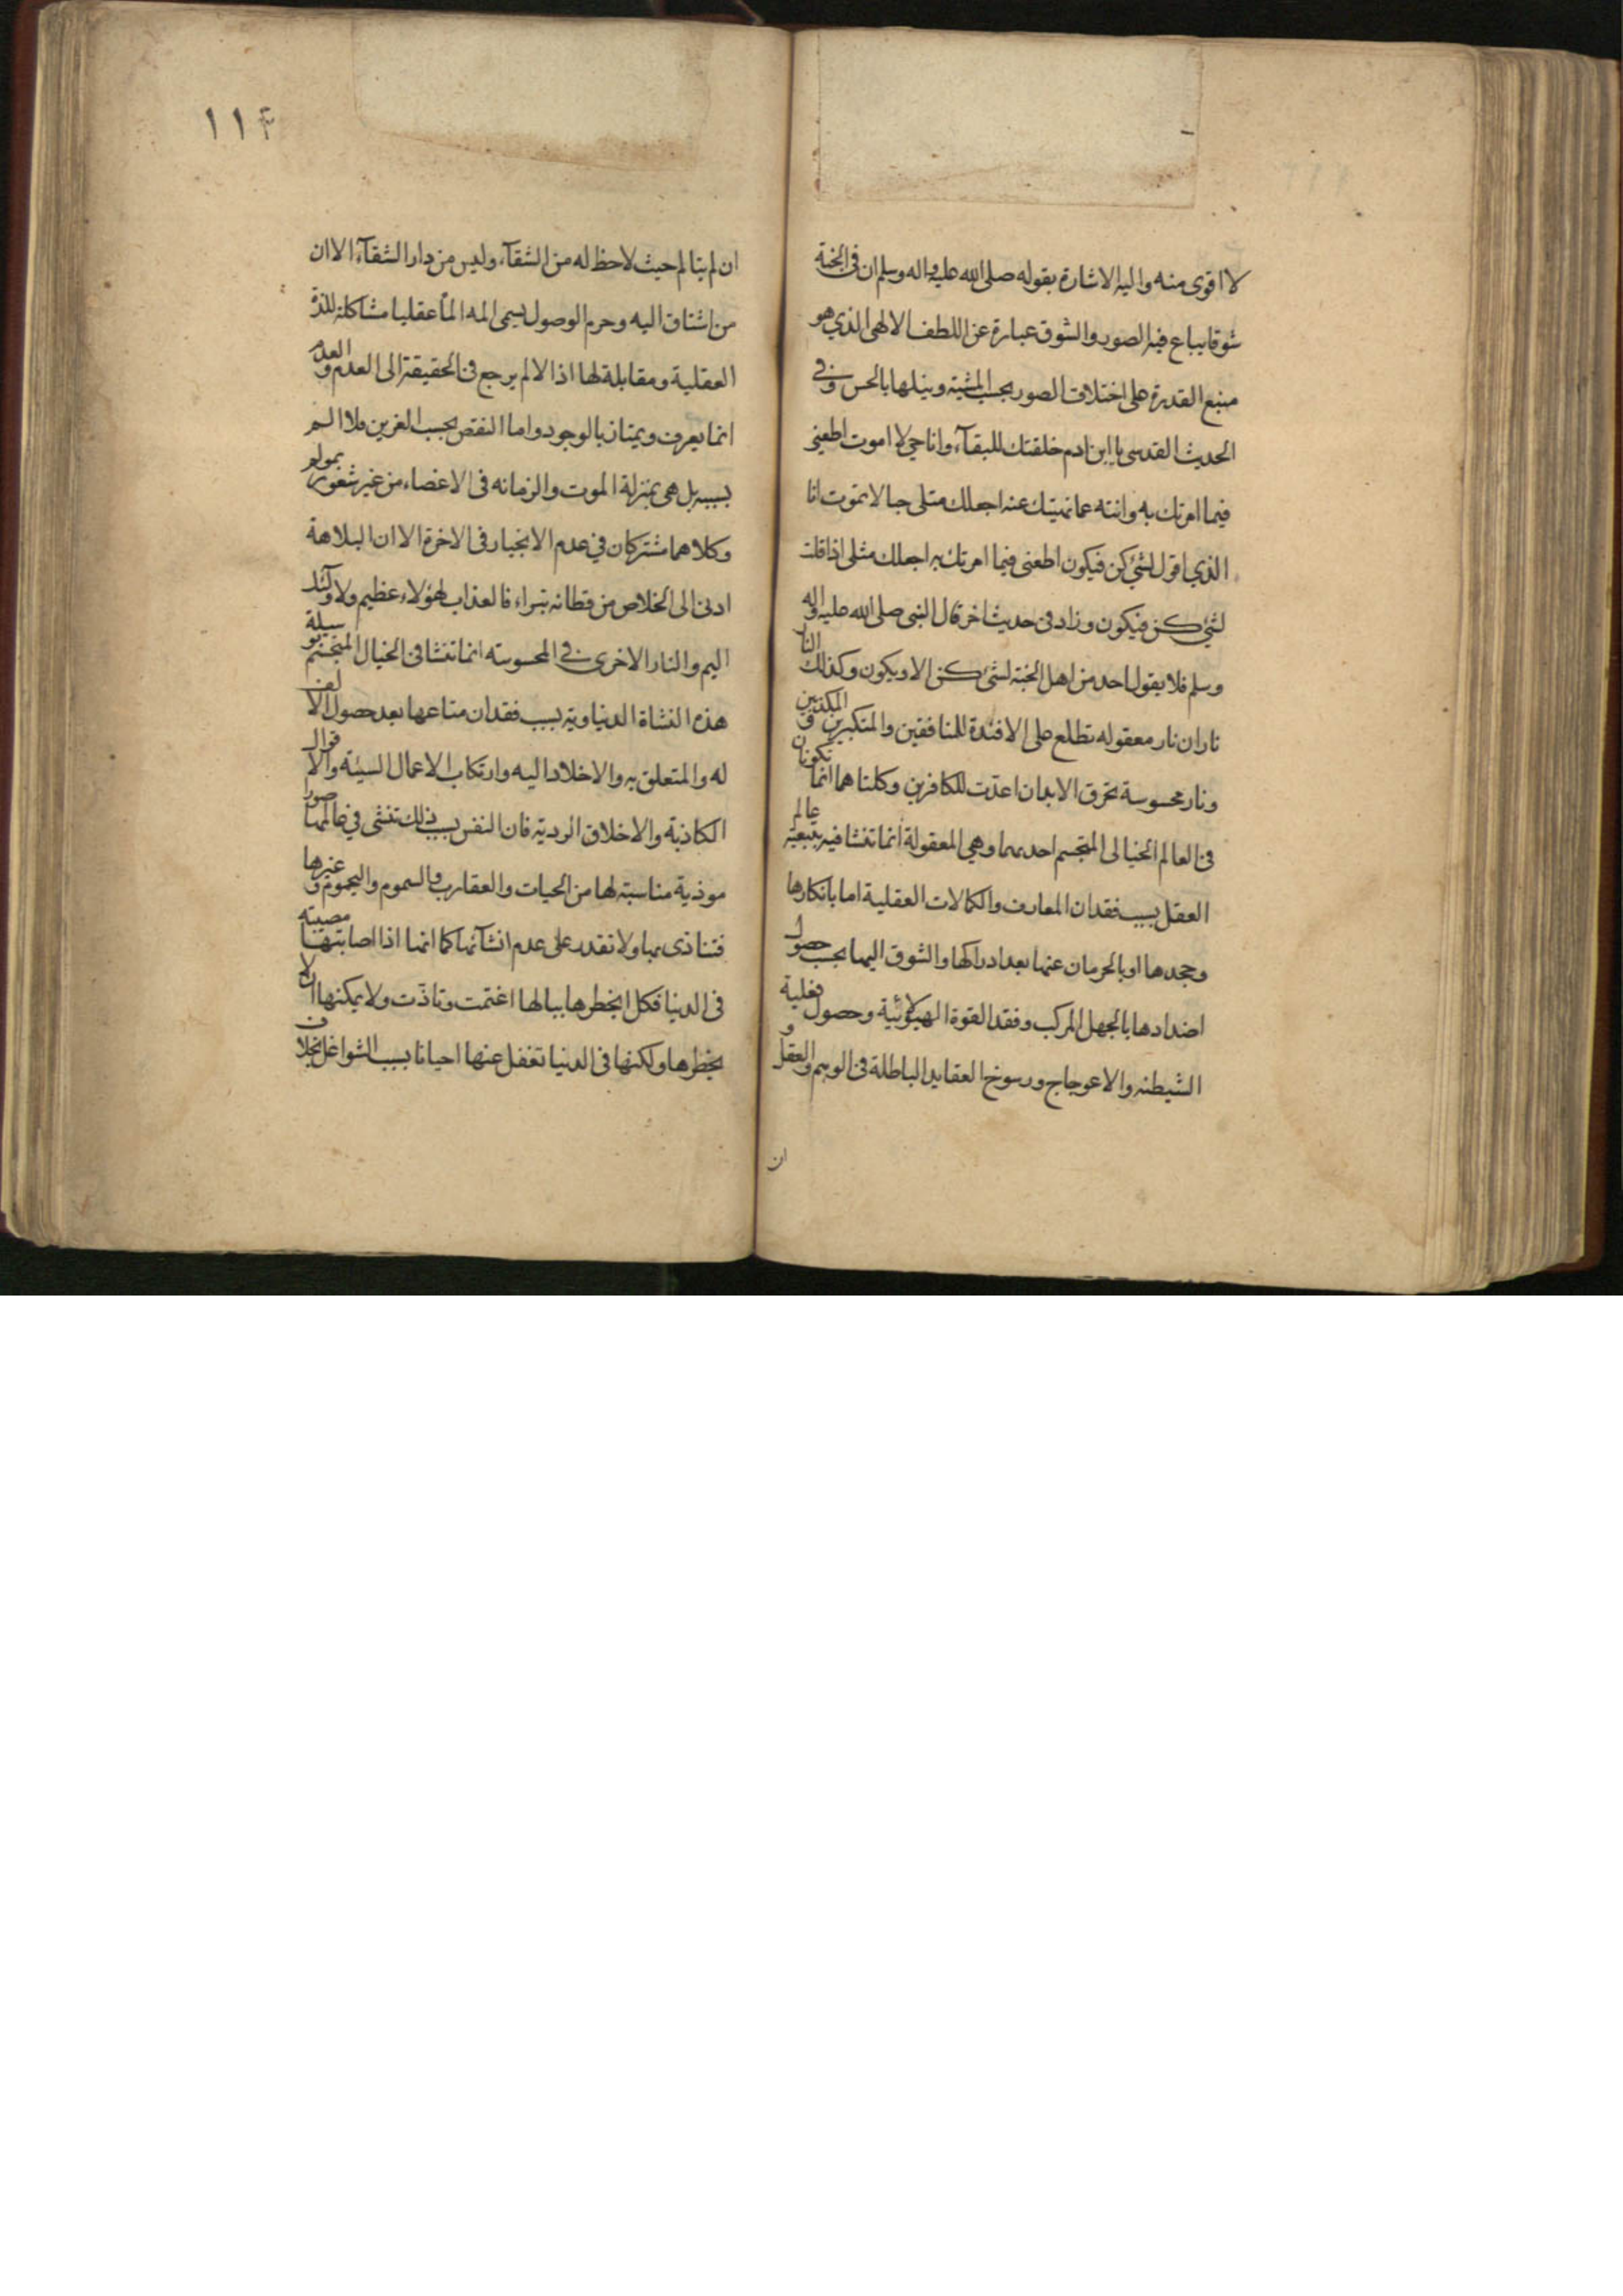 لا اقوى منه واليه الاشارة بقوله صلى الله عليه واله وسلم ان فى الجنة
سوقا يباع فيه الصور والسوق عبارة عن اللطف الالهى الذي هو
منبع القدرة على اختلاف الصور بحسب المشية وينلها بالحس وفي
الحديث القدسى يا ابن ادم خلقتك للبقآء وانا حي لا اموت اطعنى
فيما امرتك به وانته عما نهيتك عنه اجعلك مثلى حيا لا تموت انا
الذي اقول لشئ كن فيكون اطعنى فيما امرتك به اجعلك مثلى اذا قلت
لشئ كن فيكون وزاد فى حديث اخر قال النبى صلى الله عليه واله
وسلم فلا يقول احد من اهل الجنة لشئ كن الا ويكون وكذلك النار
ناران نار معقوله تطلع على الافئدة للمنافقين والمتكبرين والمكذبين
ونار محسوسة تحرق الابدان اعدت للكافرين وكلتاهما انما تكونان
فى العالم الخيالى المتجسم احديهما وهي المعقولة انما تنشا فيه بتبعية عالم
العقل بسبب فقدان المعارف والكمالات العقلية اما بانكارها
وجحدها او بالحرمان عنها بعد ادراكها والشوق اليها بحسب حصول
اضدادها بالجهل المركب وفقد القوة الهيولانية وحصول فعلية
الشيطنه والاعوجاج ورسوخ العقايد الباطلة فى الوهم والعقل و
ان
١١٤
ان لم يتالم حيث لا حظ له من الشقآء وليس من دار الشقآء الا ان
من اشتاق اليه وحرم الوصول يسمى المه المًا عقليا مشاكلة للذة
العقلية ومقابلة لها اذ الالم يرجع فى الحقيقة الى العدم والعدم
انما يعرف ويمتاز بالوجود واما النقص بحسب الغريزين فلا الم
بسببه بل هى بمنزلة الموت والزمانه فى الاعضاء من غير شعور بمولم
وكلاهما مشتركان في عدم الانجبار فى الاخرة الا ان البلاهة
ادنى الى الخلاص من فطانه بتراء فالعذاب لهؤلاء عظيم ولاولئك
اليم والنار الاخرى في المحسوسته انما تنشا فى الخيال المتجسم بوسيلة
هذه النشاة الدنياوية بسبب فقدان متاعها بعد حصول الالف
له والمتعلق به والاخلاد اليه وارتكاب الاعمال السيئة والاقوال
الكاذبة والاخلاق الردية فان النفس بسبب ذلك تنشى في عالمها صورا
موذية مناسبته لها من الحيات والعقارب والسموم واليحموم وغيرها
فتتاذى بها ولا تقدر على عدم انشآئها كما انها اذا اصابتها مصيبته
فى الدنيا فكل ايخطرها ببالها اغتمت وتاذت ولا يمكنها ان لا
يخطرها ولكنها فى الدنيا تغفل عنها احيانا بسبب الشواغل بخلاف